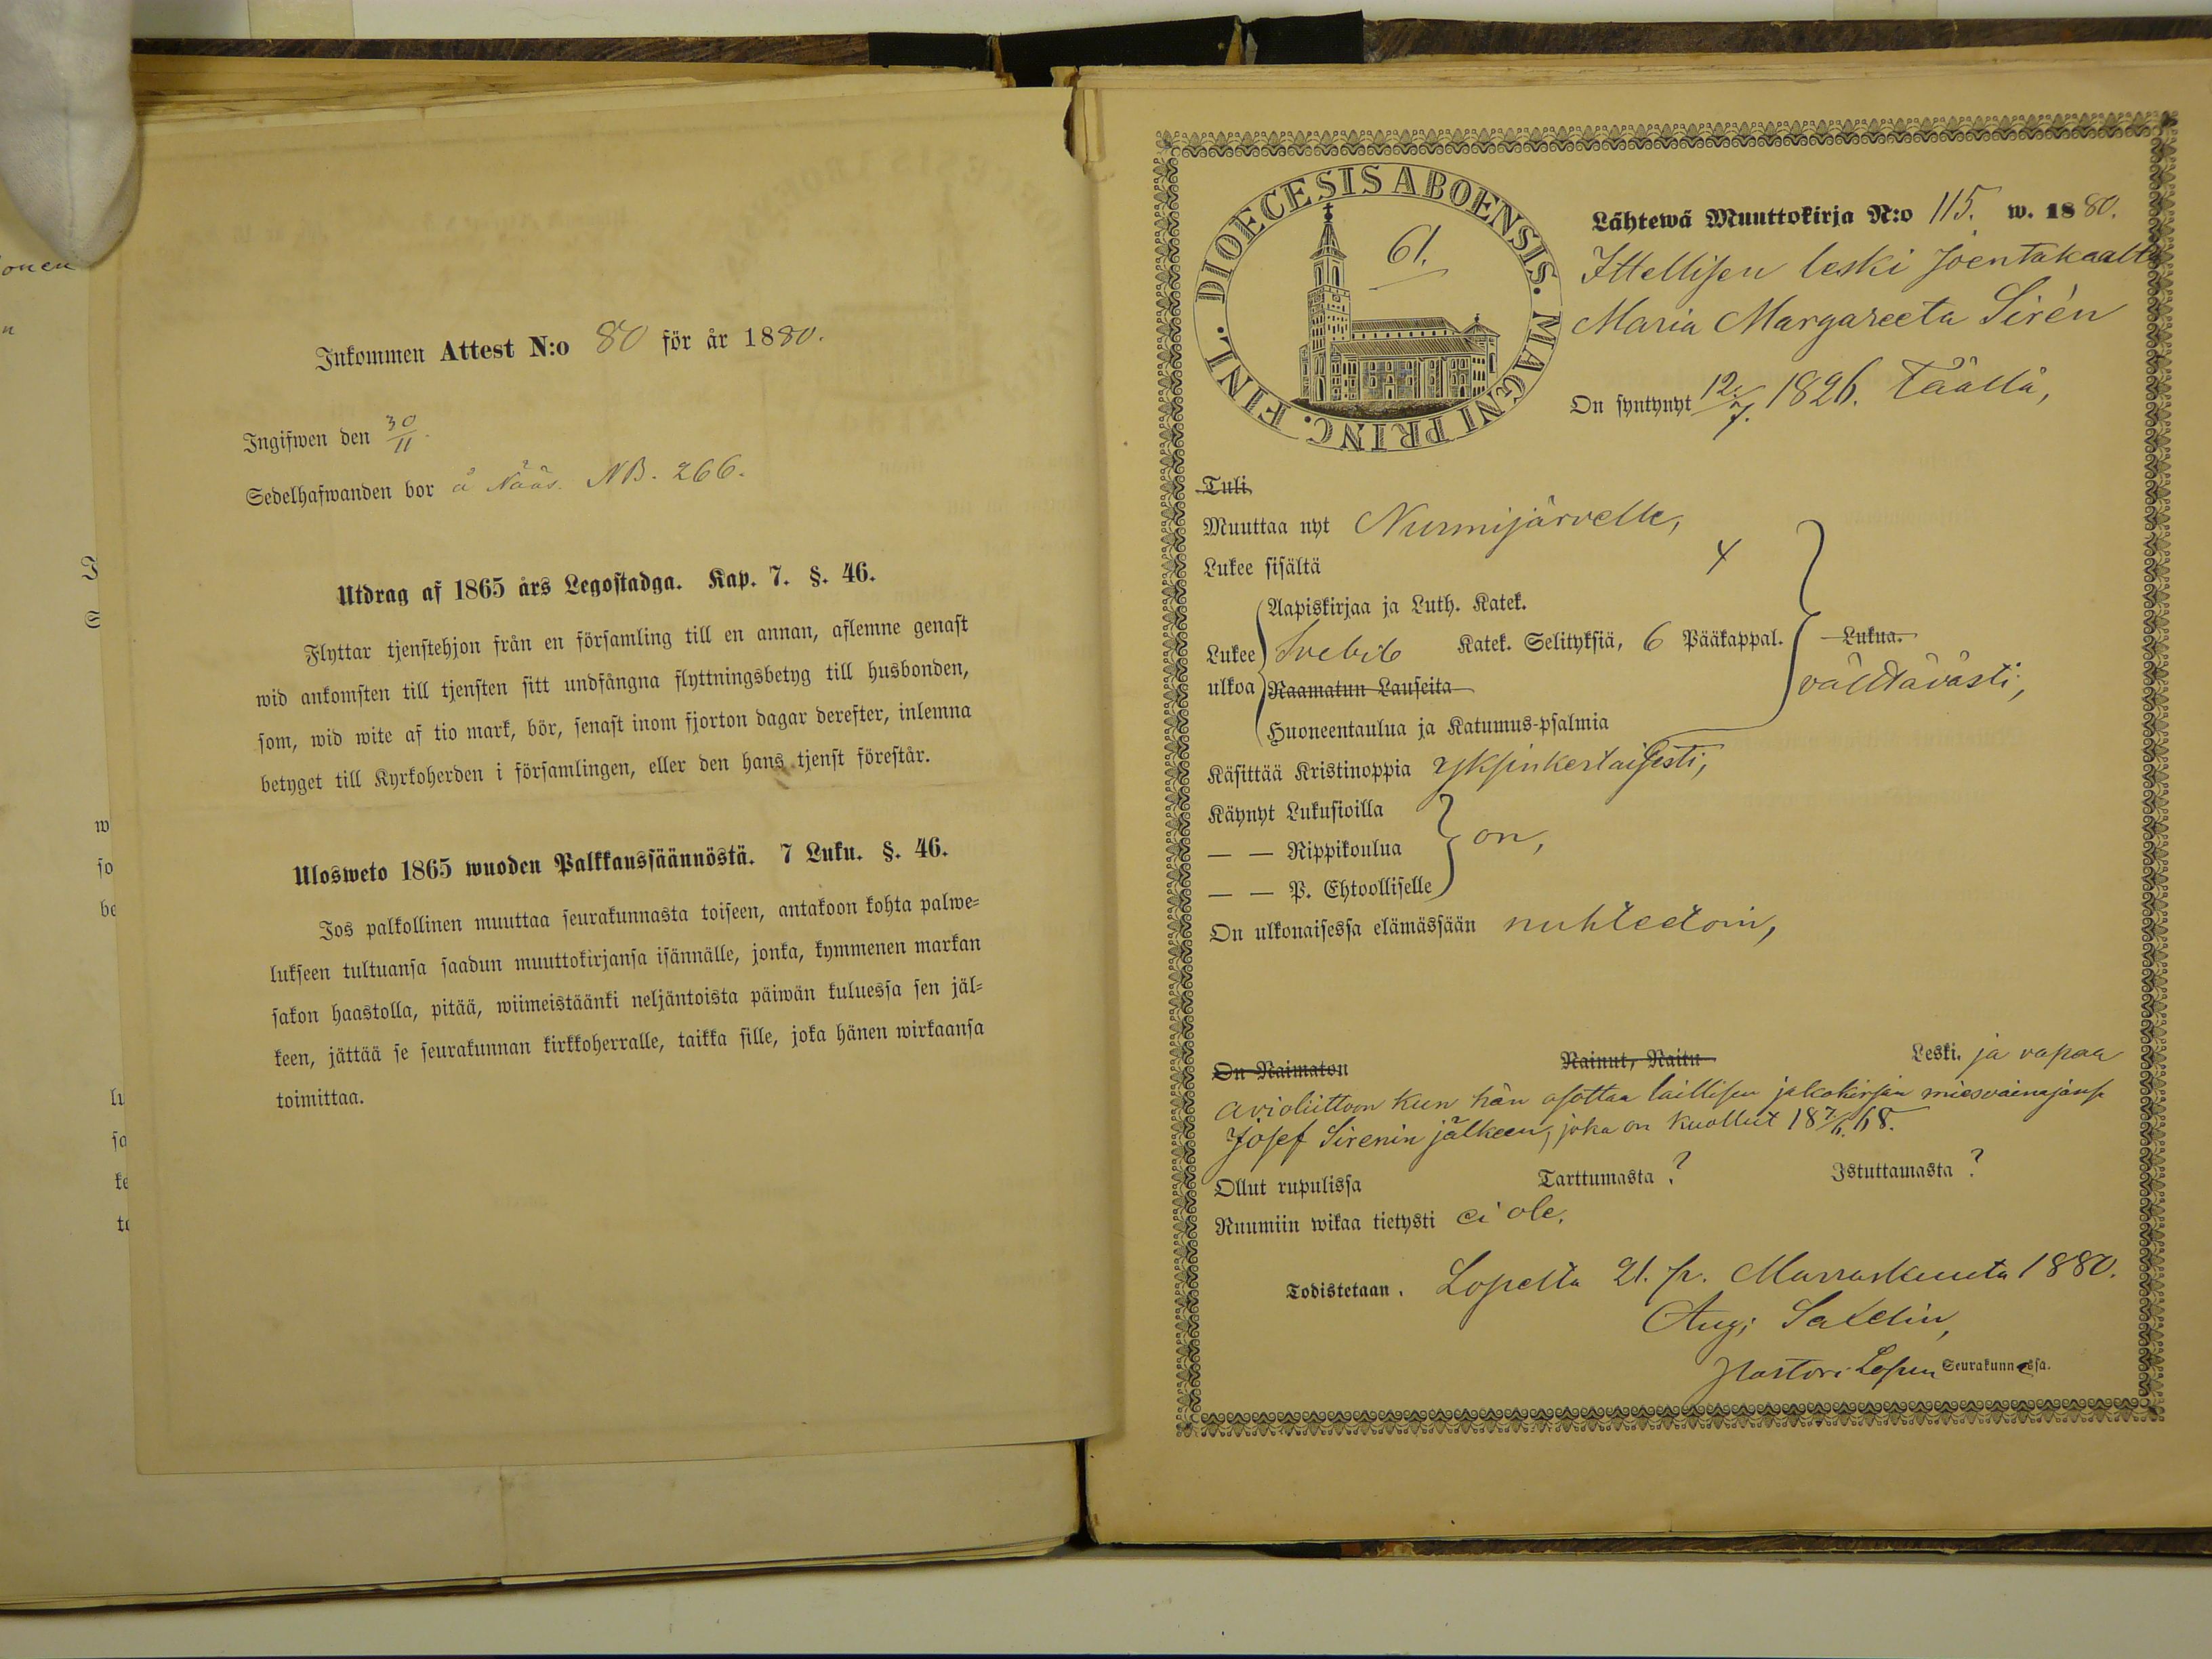 onen
n
Inkommen Attest N:o 80 för år 1880.
Ingifwen den 30/11.
Sedelhafwanden bor å Nääs. NB. 266.
Utdrag af 1865 års Legostadga. Kap. 7. §. 46.
Flyttar tjenstehjon från en församling till en annan, aflemne genast
wid ankomsten till tjensten sitt undfångna flyttningsbetyg till husbonden,
som, wid wite af tio mark, bör, senast inom fjorton dagar derefter, inlemna
betyget till Kyrkoherden i församlingen, eller den hans tjenst förestår.
Ulosweto 1865 wuoden Palkkaussäännöstä. 7 Luku. §. 46.
Jos palkollinen muuttaa seurakunnasta toiseen, antakoon kohta palwe=
lukseen tultuansa saadun muuttokirjansa isännälle, jonka, kymmenen markan
sakon haastolla, pitää, wiimeistäänki neljäntoista päiwän kuluessa sen jäl=
keen, jättää se seurakunnan kirkkoherralle, taikka sille, joka hänen wirkaansa
toimittaa.
DIOECESIS ABOENSIS. MAGNI PRINC. FINL.
61.
Lähtewä Muuttokirja N:o 115. w. 1880.
Ittellisen leski Joentakaalta
Maria Margareeta Sirén
On syntynyt 12/7. 1826. täällä,
Tuli
Muuttaa nyt Nurmijärvelle,
Lukee sisältä x
Aapiskirjaa ja Luth. Katek.
Lukee ulkoa Svebil. Katek. Selityksiä, 6 Pääkappal. Lukua.
Raamatun Lauseita välttävästi,
Huoneentaulua ja Katumus-psalmia
Käsittää Kristinoppia yksinkertaisesti,
Käynyt Lukusioilla
— — Rippikoulua on,
— — P. Ehtoolliselle
On ulkonaisessa elämässään nuhteetoin,
On Naimaton Nainut, Naitu Leski. ja vapaa
avioliittoon kun hän osottaa laillisen jakokirjan miesvainajansa
Josef Sirenin jälkeen, joka on kuollut 18 7/6. 68.
Ollut rupulissa Tarttumasta ? Istuttamasta ?
Ruumiin wikaa tietysti ei ole.
Todistetaan. Lopelta 21. p. Marraskuuta 1880.
Aug; Saxelin,
Pastori Lopen Seurakunnassa.